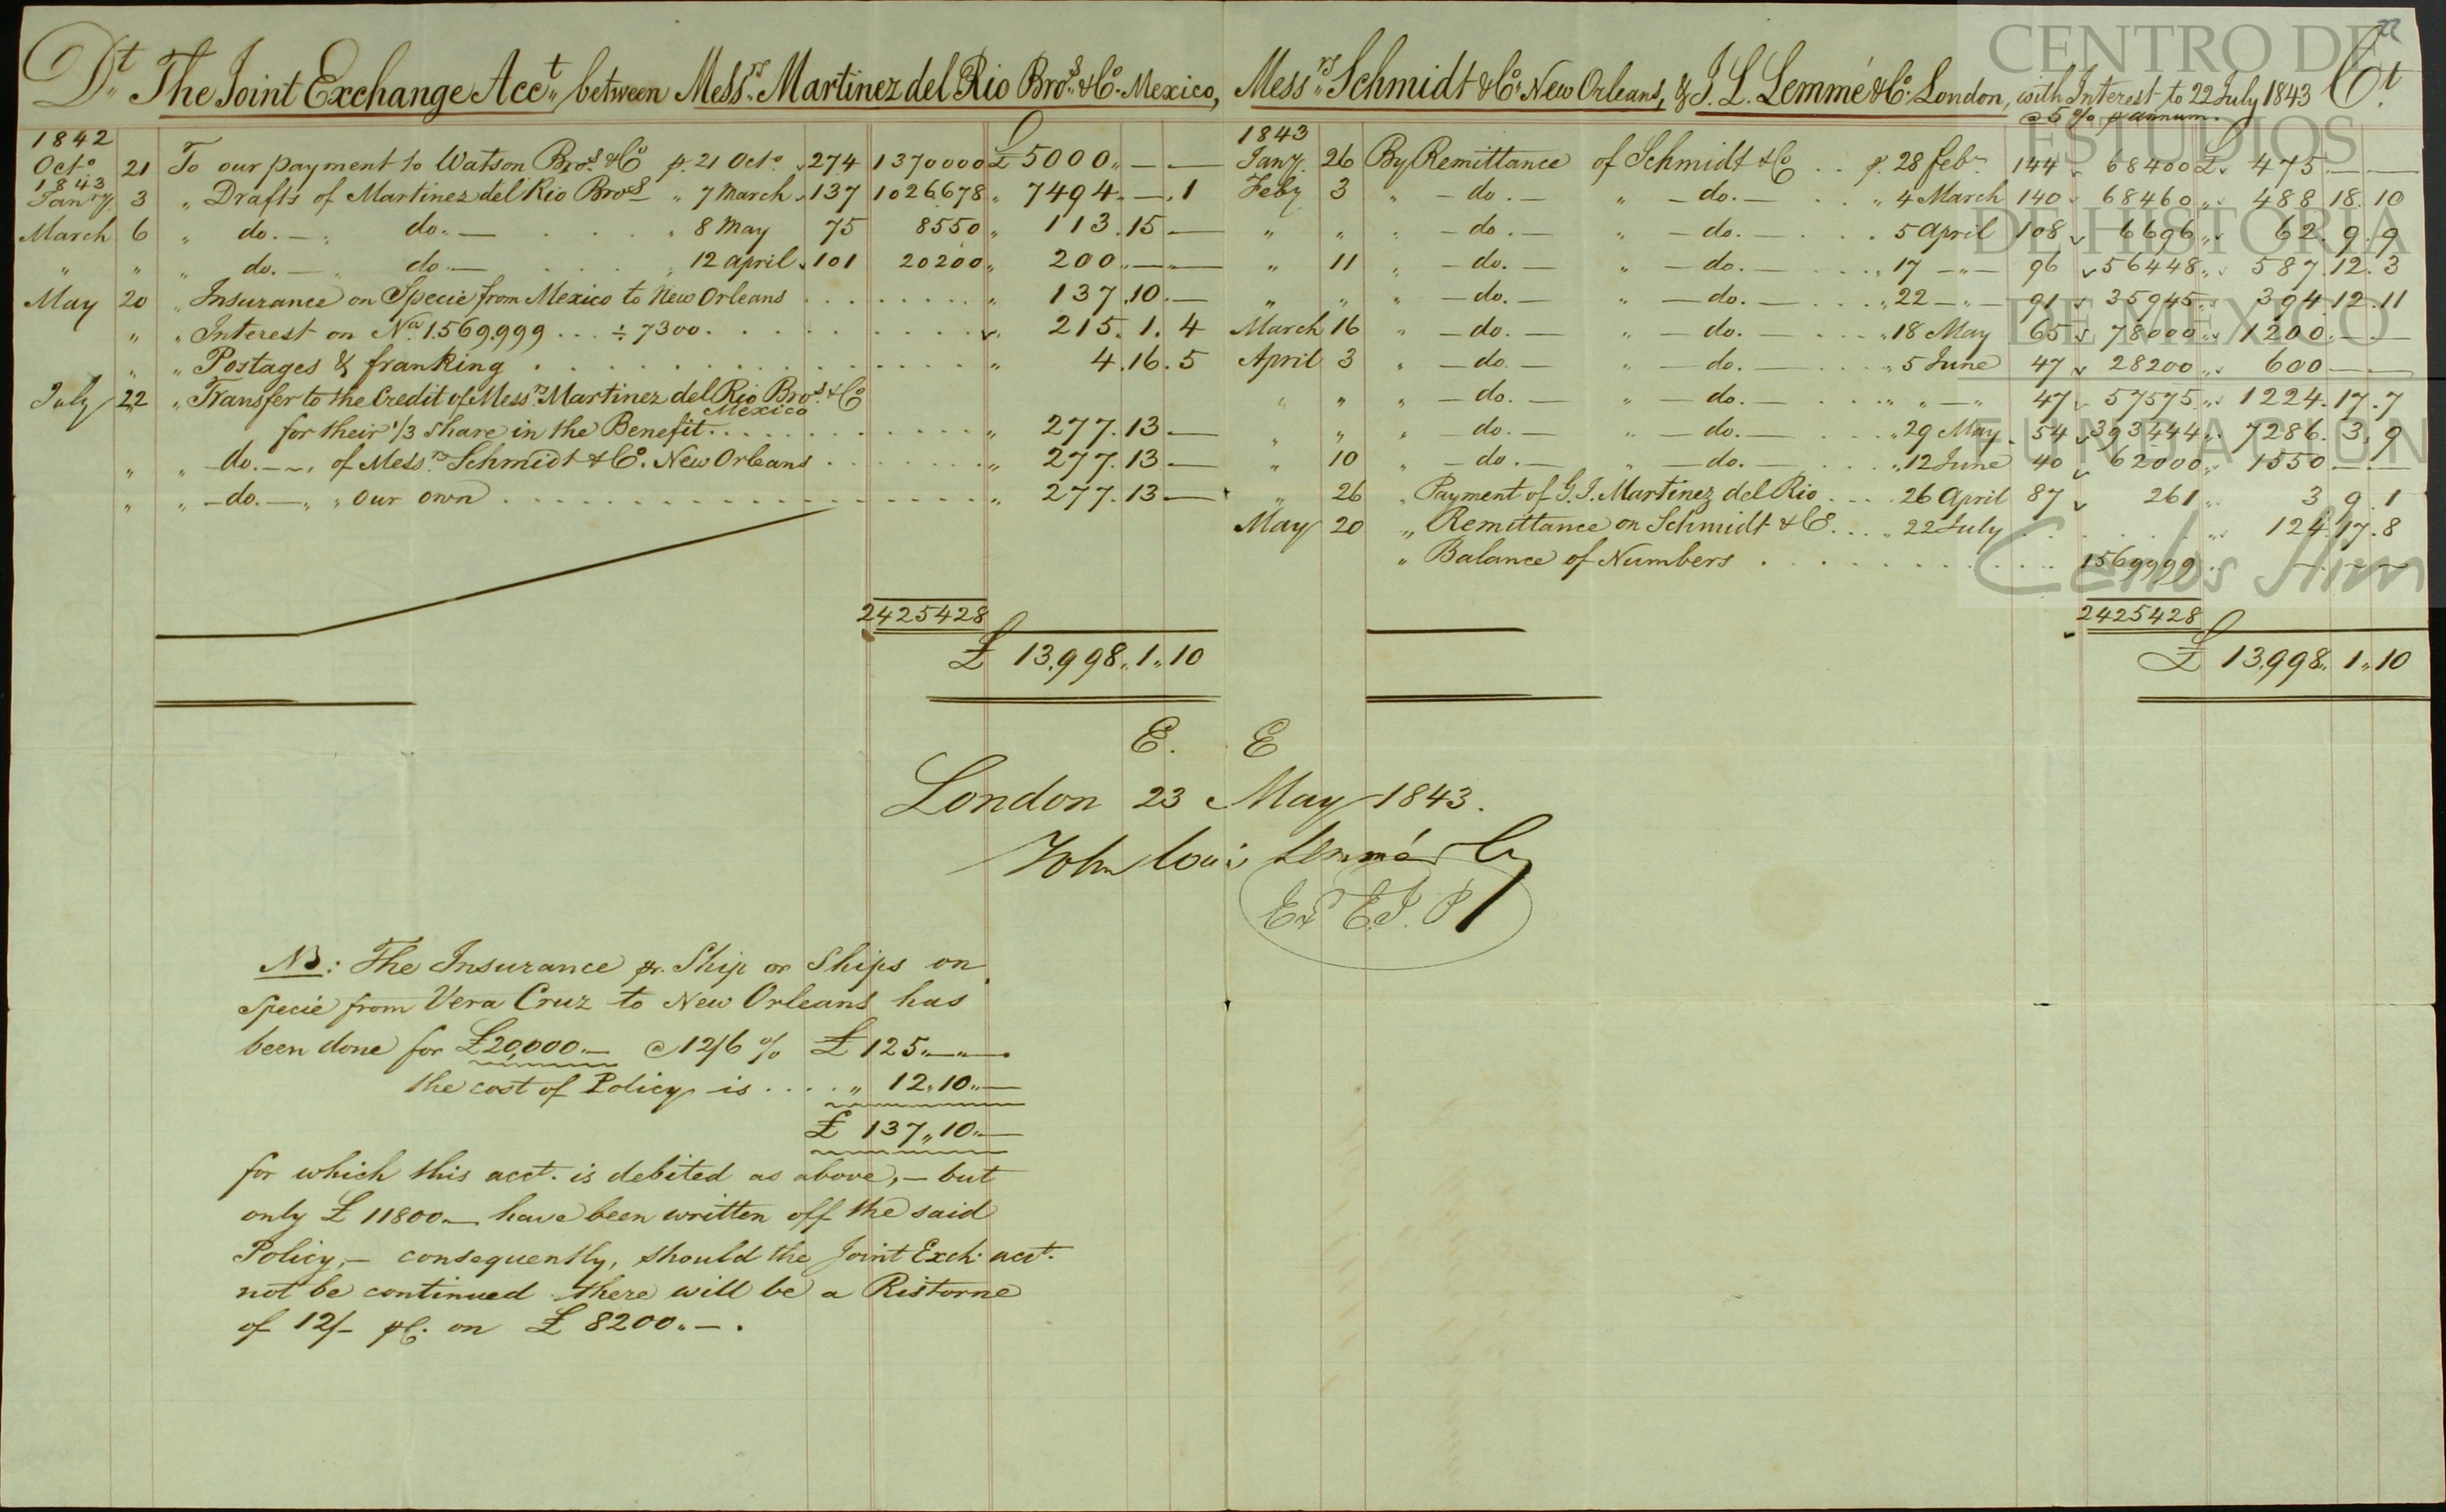 Dt. The Joint Exchange Acct. between Messrs. Martinez del Rio Bros. & Co. Mexico, Messrs. Schmidt & Co. New Orleans, & J. L. Lemmé & Co. London, with Interest to 22 July 1843 Ct.
@ 5 % p annum.
1842
Octo. 21 To our payment to Watson Bros. & Co p. 21 Octo. 274 1370000 £ 5000 " — —
1843
Jany. 3 " Drafts of Martinez del Rio Bros " 7 March 137 1026678 " 7494 . — . 1
March 6 " do. — " do. — " 8 May 75 8550 " 113 . 15 —
" " " do. — " do — " 12 april 101 20200 " 200 . — " —
May 20 " Insurance on Specie from Mexico to New Orleans . . . " 137 . 10 . —
" " Interest on No. 1.569.999 . . . ÷ 7300 . . . " 215 . 1 . 4
" " Postages & franking . . . " 4 . 16 . 5
July 22 " Transfer to the Credit of Messrs. Martinez del Rio Bros. & Co
Mexico
for their 1/3 share in the Benefit . . . " 277 . 13 —
" " do. — " of Messrs. Schmidt & Co. New Orleans . . . " 277 . 13 —
" " — do. — " " our own . . . " 277 . 13 —
2425428
£ 13,998 " 1 " 10
1843
Jany. 26 By Remittance of Schmidt & Co . . p. 28 feby. 144 68400 £ 475 — —
Feby 3 " — do. — " — do. — . . " 4 March 140 68460 " 488 18 . 10
" " " — do. — " — do. — . . . 5 april 108 6696 " 62 . 9 . 9
" 11 " — do. — " — do. — . . . " 17 — " — 96 56448 " 587 . 12 . 3
" " " — do. — " — do. — . . . " 22 — " — 91 35945 " 394 . 12 . 11
March 16 " — do. — " — do. — . . . " 18 May 65 78000 " 1200 . — —
April 3 " — do. — " — do. — . . . " 5 June 47 28200 " 600 — —
" " " — do. — " — do. — . . . " " — " 47 57575 " 1224 . 17 . 7
" " " — do. — " — do. — . . . " 29 May . 54 393444 " 7286 . 3 . 9
" 10 " — do. — " — do. — . . . " 12 June 40 62000 " 1550 — —
" 26 " Payment of G. J. Martinez del Rio . . . 26 april 87 261 " 3 9 . 1
May 20 " Remittance on Schmidt & Co. . . . " 22 July . . . " 124 . 17 . 8
" Balance of Numbers . . . 1569999 . . — . — —
2425428
£ 13,998 " 1 " 10
E. E
London 23 May 1843.
John Louis Lemmé & Co
NB: The Insurance pr. Ship or Ships on
specie from Vera Cruz to New Orleans has
been done for £20,000. — @ 12/6 % £ 125 " — " —
the cost of Policy is . . . . " 12 . 10 " —
£ 137 " 10 " —
for which this acct. is debited as above, — but
only £ 11800 — have been written off the said
Policy, — consequently, should the Joint Exch. acct.
not be continued there will be a Ristorne
of 12/- pC. on £ 8200 " — .
CENTRO DE
ESTUDIOS
DE HISTORIA
DE MEXICO
FUNDACION
Carlos Slim